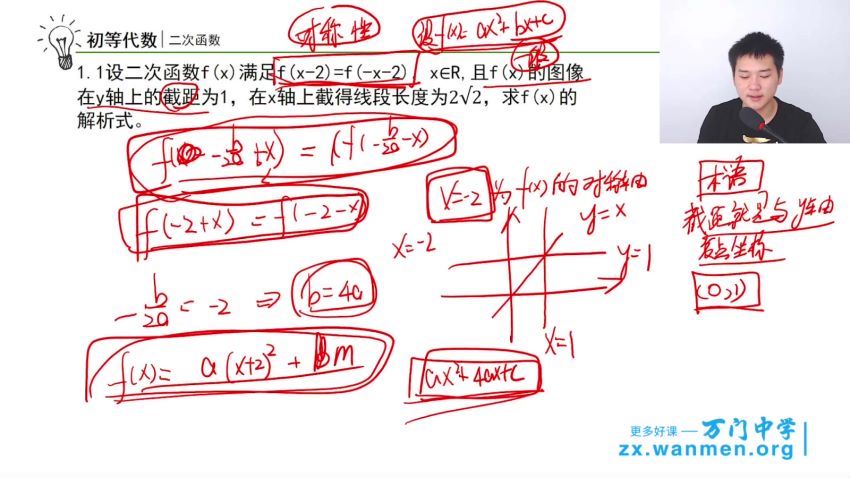 初等代数 二次函数
对称性
设f(x)=ax²+bx+c
1.1设二次函数f(x)满足f(x-2)=f(-x-2), x∈R,且f(x)的图像
在y轴上的截距为1，在x轴上截得线段长度为2√2，求f(x)的
解析式。
f(-b/2a+x)=f(-b/2a-x)
f(-2+x)=f(-2-x)
x=-2 为f(x)的对称轴
x=-2
y=x
y=1
x=1
-b/2a=-2 ⇒ b=4a
f(x)= a(x+2)²+ m
ax²+4ax+c
术语
截距就是与y轴
交点坐标
(0,1)
更多好课 — 万门中学
zx.wanmen.org